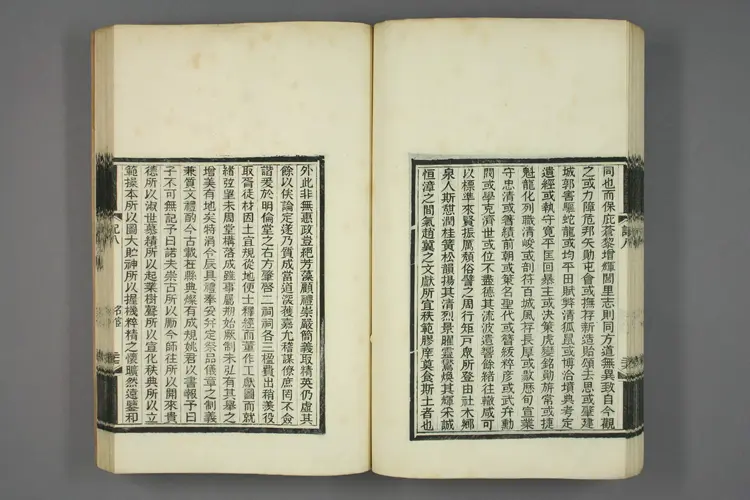 同也而保庇蒼黎增輝閭里志則同方道無異致自今觀
之或力障危邦矢勛屯會或撫存新造貽頌去思或肇建
城郭害驅蛇龍或均平田賦弊清狐鼠或博洽墳典考定
遺經或執守寬平匡回暴主或決策虎變銘勛旂常或捷
魁龍化列職清峻或剖符百城風存長厚或歷旬宣業
守忠清或著績前朝或策名聖代或簪紱稗彥或武升勳
閥或學克濟世或位不盡德其流波遺響餘緒往轍咸可
以標準來賢振厲頹俗譬之周行矩戶眾所登由社木鄉
泉人斯慰潤桂薰松韻揚其清烈景曜靈鸞煥其輝采誠
恒漳之間氣趙冀之文獻所宜秩範膠庠莫食斯土者也
外此非無惠政豈絕芳藻顧禮崇嚴簡義取精英仍虛其
餘以俟論定遂乃質成當道深獲嘉允稽謀僚庶罔不僉
諧爰於明倫堂之右方肇啓二祠祠各三楹費出稍羨役
取胥徒材因土宜規從地便士釋經而董作工獻圖而就
緒弦望未周堂構落成雖事屬刱始厥制未弘有其舉之
增美有地矣特消今辰具禮奉安并定祭品儀章之制義
兼質文禮酌今古載在縣典燦有成規姚君以書報予曰
子不可無記予曰諾夫崇古所以勵今師往所以開來貴
德所以淑世基精所以起業樹聲所以宣化秩典所以立
範操本所以圖大貯神所以握機粹精之懷曠然遠鑒和
記八
名宦